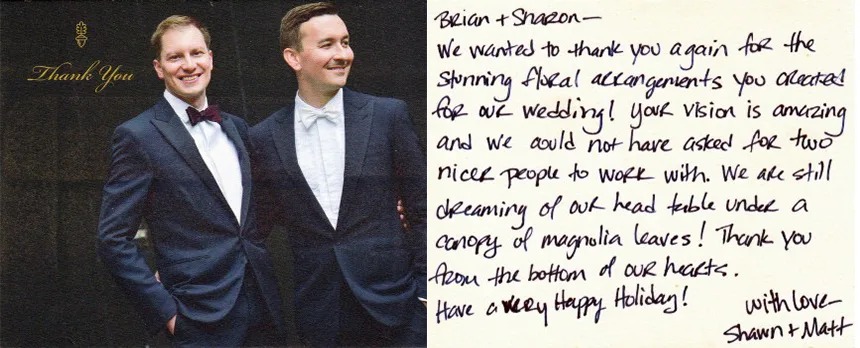 Thank You
Brian + Sharon—
We wanted to thank you again for the
stunning floral arrangements you created
for our wedding! Your vision is amazing
and we could not have asked for two
nicer people to work with. We are still
dreaming of our head table under a
canopy of magnolia leaves! Thank you
from the bottom of our hearts.
Have a very Happy Holiday!
with love—
Shawn + Matt